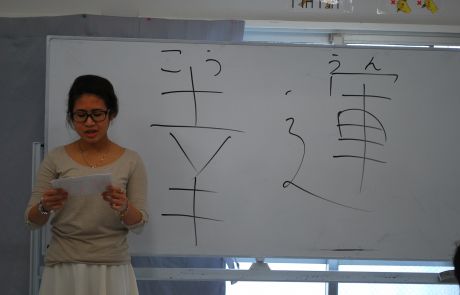 こう うん
幸運